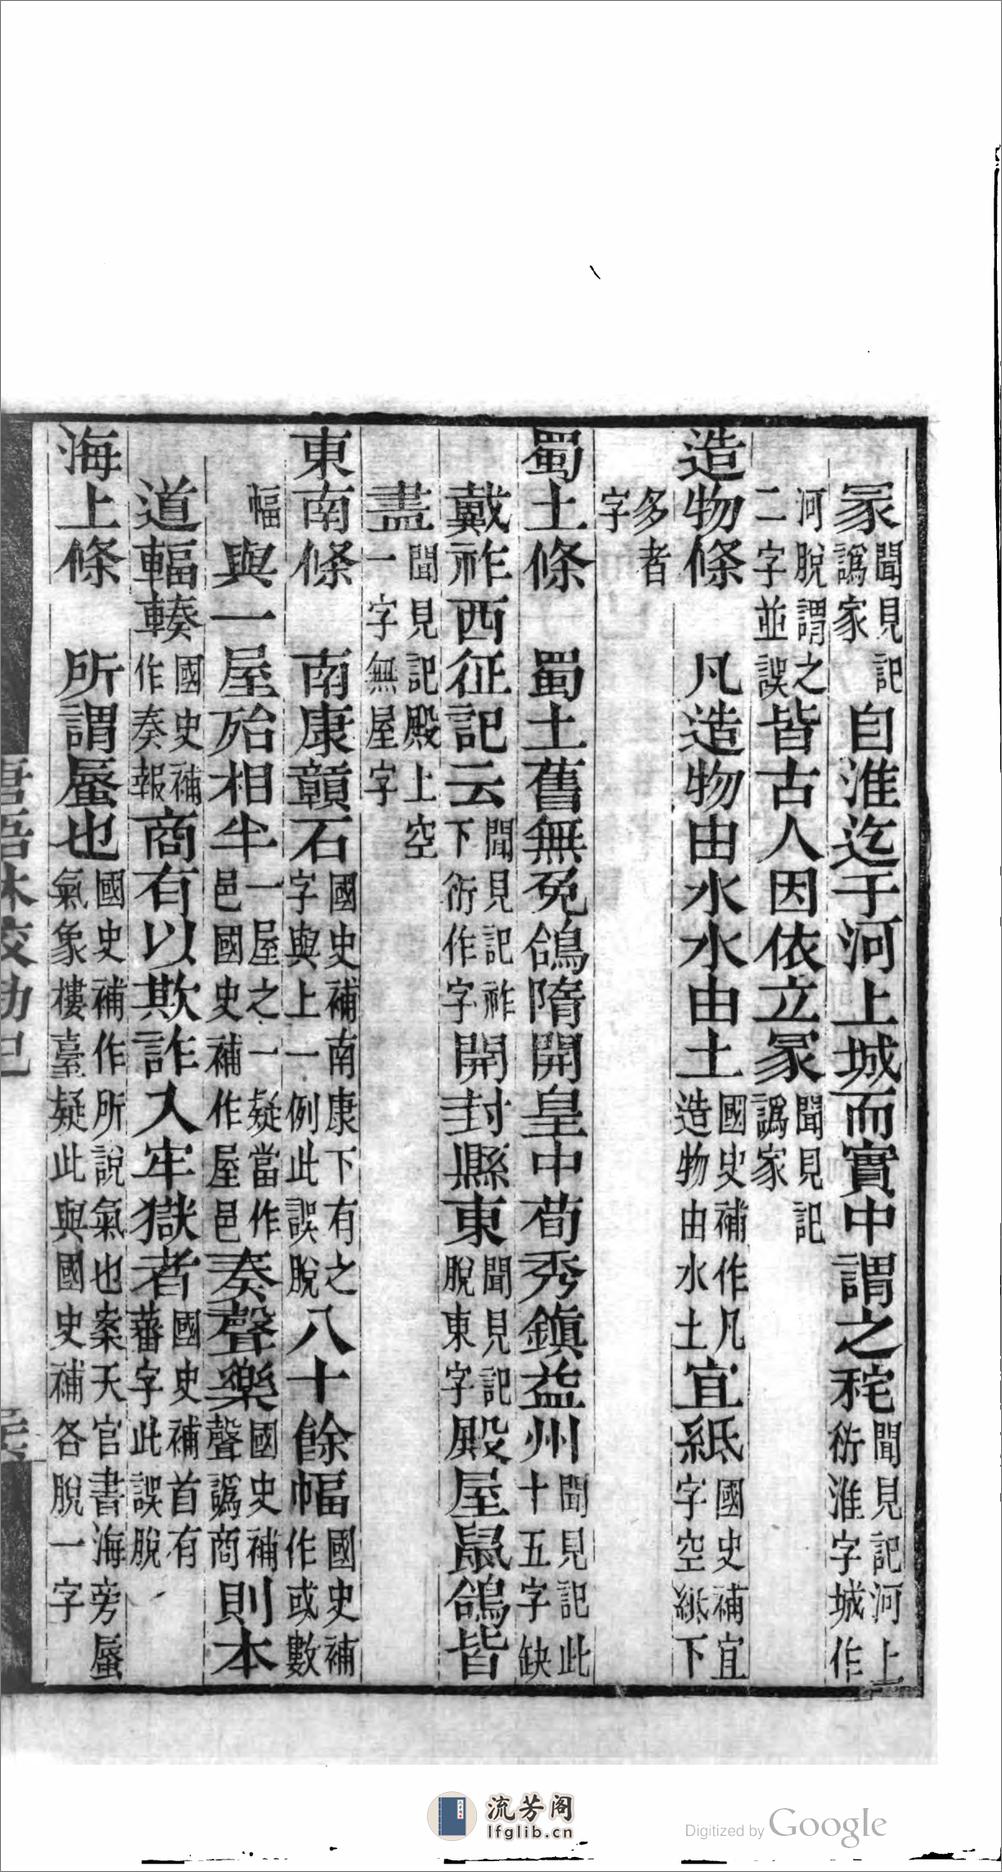 冢聞見記譌冢家自淮迄于河上城而實中謂之秺聞見記河上衍淮字城作
河脫謂之二字並誤皆古人因依立冢聞見記譌家
造物條　凡造物由水水由土國史補作凡造物由水土宜紙國史補宜字空紙下
多者字
蜀土條　蜀土舊無兔鴿隋開皇中荀秀鎮益州聞見記此十五字缺
戴祚西征記云聞見記祚下衍作字開封縣東聞見記脫東字殿屋鼠鴿皆
盡聞見記殿上空一字無屋字
東南條　南康贛石國史補南康下有之字與上一例此誤脫八十餘幅國史補作或數
幅與一屋殆相半一屋之一疑當作邑國史補作屋邑奏聲樂國史補聲譌商則本
道輻輳國史補輳作奏報商有以欺詐入牢獄者國史補首有蕃字此誤脫
海上條　所謂蜃也國史補作所說氣也案天官書海旁蜃氣象樓臺疑此與國史補各脫一字
唐語林校勘記
流芳阁
lfglib.cn
Digitized by Google